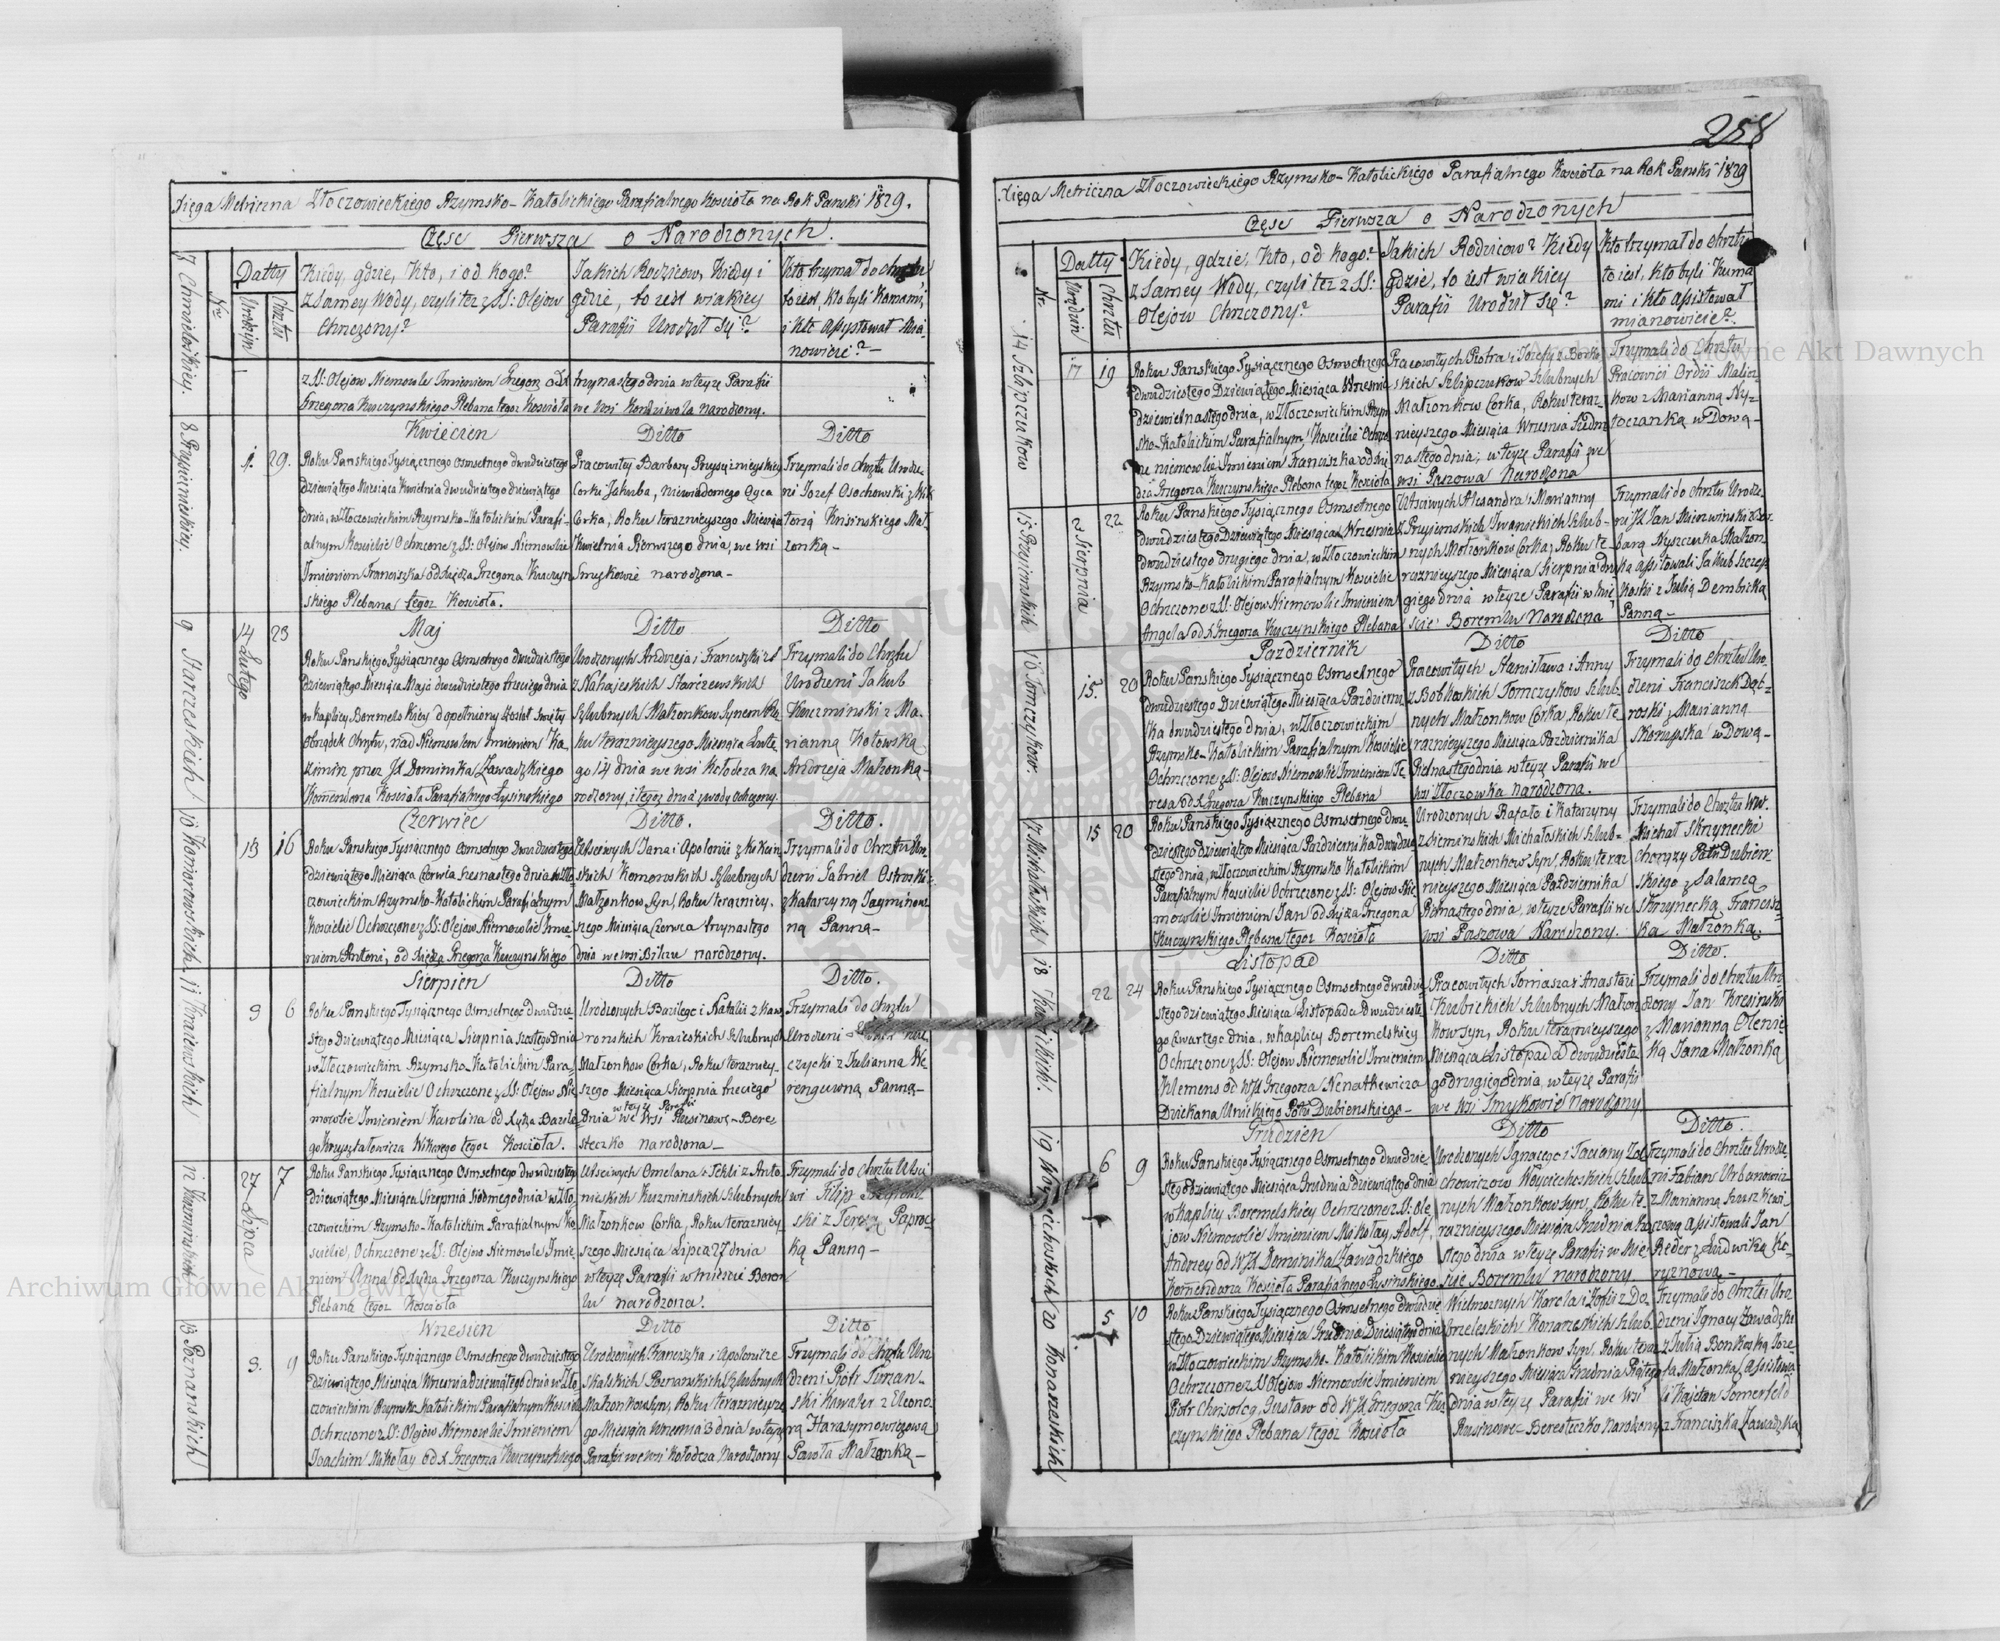 258
Xięga Metriczna Złoczowieckiego Rzymsko-Katolickiego Parafialnego Kościoła na Rok Panski 1829.
Częsc Pierwsza o Narodzonych.
Nr
Datty
Urodzin
Chrztu
Kiedy, gdzie, Kto, i od Kogo?
z Samey Wody, czyli tez z SS: Olejow
Chrzczony?
Jakich Rodzicow, Kiedy i
gdzie, to jest w iakiey
Parafii Urodził Się?
Kto trzymał do chrztu
to iest, kto byli Kumami,
i Kto Assystował Mia-
nowicie?
7 Chmieloskiey.
z SS: Olejow Niemowle Imieniem Grzegorz od X
Grzegorza Kuczynskiego Plebana tegoz Kościoła
trzynastego dnia w teyze Parafii
we Wsi Kondziwola narodzony.
Kwiecien
Ditto
Ditto
8
1.
29.
Roku Panskiego Tysiącznego Osmsetnego dwudziestego
dziewiątego Miesiąca Kwietnia dwudziestego dziewiątego
dnia, w Złoczowieckim Rzymsko-Katolickim Parafi-
alnym Kościele Ochrzczone z SS: Olejow Niemowle
Imieniem Franciszka od Xiędza Grzegorza Kuczyn
skiego Plebana tegoz Kościoła.
Pracowitey Barbary
Corki Jakuba, niewiadomego Oyca
Corka, Roku teraznieyszego Miesiąca
Kwietnia Pierwszego dnia, we wsi
Smykowie narodzona-
Trzymali do Chrztu Urodze-
ni Jozef Osochowski z
Krisinskiego Mał-
zonką-
Maj
Ditto
Ditto
9
14 Lutego
23
Roku Panskiego Tysiącznego Osmsetnego dwudziestego
dziewiątego Miesiąca Maja dwudziestego trzeciego dnia
w kaplicy Boremelskiey dopełniony został Swięty
Obrządek Chrztu, nad Niemowlem Imieniem Ka
zimir przez JX Dominika Zawadzkiego
Komendarza Kościoła Parafialnego Łysinskiego
Urodzonych Andrzeja i Franciszki
z Nahajeskich Starczewskich
Szlubnych Małzonkow Synem Ro
ku teraznieyszego Miesiąca Lute
go 14 dnia we wsi Kołodeza na
rodzony, i tegoz dnia z wody ochczony.
Trzymali do Chrztu
Urodzeni Jakub
Kuczminski z Ma-
rianną Kotowską
Andrzeja Małzonką-
Czerwiec
Ditto.
Ditto.
10 Komorowskich
13
16
Roku Panskiego Tysiącznego Osmsetnego Dwudziestego
dziewiątego Miesiąca Czerwca szesnastego dnia w Zło
czowieckim Rzymsko-Katolickim Parafialnym
Kościele Ochrzczone z SS: Olejow Niemowle Imie-
niem Antoni, od Xiędza Grzegorza Kuczynskiego
Uczciwych Jana i Apolonii z
skich Komorowskich Szlubnych
Małzonkow Syn, Roku terazniey-
szego Miesiąca Czerwca trzynastego
dnia we wsi Bilcze narodzony.
Trzymali do Chrztu Uro
dzeni Gabriel Ostroski
z Katarzyną
ną Panną-
Sierpien
Ditto
Ditto.
11 Krajewskich
3
6
Roku Panskiego Tysiącznego Osmsetnego dwudzie-
stego Dziewiątego Miesiąca Sierpnia szostego dnia
w Złoczowieckim Rzymsko-Katolickim Para-
fialnym Kościele Ochrzczone z SS: Olejow Nie-
mowle Imieniem Karolina od Xiędza Bazile-
go Krysztalowicza Wikarego tegoz Kościoła.
Urodzonych Bazilego i Natalii z Kaw
ronskich Kraieskich Szlubnych
Małzonkow Corka, Roku terazniey-
szego Miesiąca Sierpnia trzeciego
w teyze Parafii
Dnia we Wsi Rusinowe-Bere-
steczko narodzona-
Trzymali do Chrztu
Urodzeni
czycki z Julianną
rengowną Panną-
12 Kuzminskich
27 Lipca
7
Roku Panskiego Tysiącznego Osmsetnego dwudziestego
dziewiątego Miesiąca Sierpnia Siodmego dnia w Zło
czowieckim Rzymsko-Katolickim Parafialnym Ko
ściele, Ochrzczone z SS: Olejow Niemowle Imie-
niem Anna od Xiędza Grzegorza Kuczynskiego
Plebana tegoz Kościoła
Uczciwych Omelana i Tekli z Anto
nieskich Kuzminskich Szlubnych
Małzonkow Corka, Roku teraznіey
szego Miesiąca Lipca 27 dnia
w teyze Parafii w Miescie Borom
lu narodzona.
Trzymali do Chrztu Uczci
wi Filip
ski z Teresą Paproc-
ką Panną-
Wrzesien
Ditto
Ditto
13 Poznanskich
3.
9
Roku Panskiego Tysiącznego Osmsetnego Dwudziestego
dziewiątego Miesiąca Wrzesnia Dziewiątego dnia w Zło-
czowieckim Rzymsko-Katolickim Parafialnym Kościele
Ochrzczone z SS: Olejow Niemowle Imieniem
Joachim Mikołay od X Grzegorza Kuczynskiego
Urodzonych Franciszka i Apolonii ze
Skalskich Poznanskich Szlubnych
Małzonkow Syn, Roku teraznieysze
go Miesiąca Wrzesnia 3 dnia w teyze
Parafii we wsi Kołodeza Narodzony
Trzymali do Chrztu Uro
dzeni Piotr
ski Kawaler z Eleono-
rą Harasymowiczową
Pawoła Małzonką-
Xięga Metriczna Złoczowieckiego Rzymsko-Katolickiego Parafialnego Kościoła na Rok Panski 1829
Częsc Pierwsza o Narodzonych
Nr.
Datty
Urodzin
Chrztu
Kiedy, gdzie, Kto, od kogo?
z Samey Wody, czyli tez z SS:
Olejow Chrzczony?
Jakich Rodzicow? Kiedy
gdzie, to iest w iakiey
Parafii Urodził Się?
Kto trzymał do Chrztu
to iest, kto byli Kuma
mi i kto assistował
mianowicie?
14 Szlipczukow
17
19
Roku Panskiego Tysiącznego Osmsetnego
dwudziestego Dziewiątego Miesiąca Wrzesnia
dziewietnastego dnia, w Złoczowieckim Rzym
sko-Katolickim Parafialnym Kościele Ochrzczo
ne niemowle Imieniem Franciszka od Xię
dza Grzegorza Kuczynskiego Plebana tegoz Kościoła
Pracowitych Piotra i Jozefy z Borko
skich Szlipczukow Szlubnych
Małzonkow Corka, Roku teraz-
nieyszego Miesiąca Wrzesnia Siedm
nastego dnia, w teyze Parafii we
wsi Paszowa Narodzona
Trzymali do Chrztu
Pracowici Ordii Malin-
kow z Marianną
toczanką w Dową-
15 Przyiemskich
2 Sierpnia
22
Roku Panskiego Tysiącznego Osmsetnego
dwudziestego Dziewiątego Miesiąca Wrzesnia
dwudziestego drugiego dnia, w Złoczowieckim
Rzymsko-Katolickim Parafialnym Kościele
Ochrzczone z SS: Olejow Niemowle Imieniem
Angela od X Grzegorza Kuczynskiego Plebana
Uczciwych Alexandra i Marianny
z Przyiemskich Iwanickich Szlub-
nych Małzonkow Corka, Roku te
raznieyszego Miesiąca Sierpnia dru
giego dnia w teyze Parafii w Mie
scie Boremlu Narodzona
Trzymali do Chrztu Urodze-
ni JX Jan Mierzwinski z Bar
barą Nyszczuka Małzon
ką assistowali Jakub Szczep
koski z Julią Dembicką
Panną-
Pazdziernik
Ditto
Ditto
16 Tomczykow.
15.
20
Roku Panskiego Tysiącznego Osmsetnego
dwudziestego Dziewiątego Miesiąca Pazdzierni
ka dwudziestego dnia, w Złoczowieckim
Rzymsko-Katolickim Parafialnym Kościele
Ochrzczone z SS: Olejow Niemowle Imieniem Te
resa od X Grzegorza Kuczynskiego Plebana
Pracowitych Stanisława i Anny
z Bobkoskich Tomczykow Szlub-
nych Małzonkow Corka, Roku te
raznieyszego Miesiąca Pazdziernika
Pietnastego dnia w teyze Parafii we
wsi Złoczowka narodzona.
Trzymali do Chrztu Uro-
dzeni Franciszek Dąb-
roski z Marianną
Skorupska w Dową-
17 Michałoskich
15
20
Roku Panskiego Tysiącznego Osmsetnego dwu
dziestego dziewiątego Miesiąca Pazdziernika dwudzie
stego dnia, w Złoczowieckim Rzymsko Katolickim
Parafialnym Kościele Ochrzczone z SS: Olejow Nie
mowle Imieniem Jan od Xiędza Grzegorza
Kuczynskiego Plebana tegoz Kościoła
Urodzonych Rafała i Katarzyny
z Zieminskich Michałoskich Szlub-
nych Małzonkow Syn, Roku teraz
nieyszego Miesiąca Pazdziernika
Pietnastego dnia, w teyze Parafii we
wsi Paszowa Narodzony.
Trzymali do Chrztu WW.
Michał Skrzynecki
Chorązy Pottu Dubien-
skiego z Salomeą
Skrzynecką Francisz-
ka Małzonką.
Listopad
Ditto
Ditto.
18 Kubickich.
22
24
Roku Panskiego Tysiącznego Osmsetnego dwudzie
stego dziewiątego Miesiąca Listopada Dwudzieste
go Czwartego dnia, w kaplicy Boremelskiey
Ochrzczone z SS: Olejow Niemowle Imieniem
Klemens od WJX Grzegorza Nenatkewicza
Dziekana Unickiego Pottu Dubienskiego-
Pracowitych Tomasza i Anastazi
Kubickich Szlubnych Małzon
kow Syn, Roku teraznieyszego
Miesiąca Listopada dwudzieste
go drugiego dnia, w teyze Parafii
we Wsi Smykowie narodzony
Trzymali do Chrztu Uro
dzony Jan Kresinski
z Marianną Olenic
ką Jana Małzonką
Grudzien
Ditto
Ditto.
19 Woyciechoskich
6
9
Roku Panskiego Tysiącznego Osmsetnego dwudzie-
stego dziewiątego Miesiąca Grudnia dziewiątego dnia
w kaplicy Boremelskiey Ochrzczone z SS: Ole
jow Niemowle Imieniem Mikołay, Adolf,
Andrzey od WJX Dominika Zawadzkiego
Komendarza Kościoła Parafialnego Łysinskiego
Urodzonych Ignacego i Taciany
chowizow Woyciechoskich Szlub
nych Małzonkow Syn, Roku te-
raznieyszego Miesiąca Grudnia
stego dnia w teyze Parafii w Mie
scie Boremlu narodzony
Trzymali do Chrztu Urodze
ni Fabian Urbanowicz
z Marianną
czową assistowali Jan
Reder z Ludwiką Ko-
ryznową-
20 Konarzeskich
5
10
Roku Panskiego Tysiącznego Osmsetnego dwudzie
stego Dziewiątego Miesiąca Grudnia Dziesiątego dnia
w Złoczowieckim Rzymsko-Katolickim Kościele
Ochrzczone z SS Olejow Niemowle Imieniem
Piotr Chrisolog, Gustaw od WJX Grzegorza Ku
czynskiego Plebana tegoz Kościoła
Wielmoznych Karola i Zofii z Do-
brzeleskich Konarzeskich Szlub-
nych Małzonkow Syn, Roku teraz
nieyszego Miesiąca Grudnia Piątego
dnia w teyze Parafii we wsi
Rusinowe-Beresteczko Narodzony
Trzymali do Chrztu Uro
dzeni Ignacy Zawadzki
z Julią Bonkoską Joze
fa Małzonką assistowa
li Kajetan Somerfeld
z Franciszką Zawadzką
Archiwum Główne Akt Dawnych
Archiwum Główne Akt Dawnych